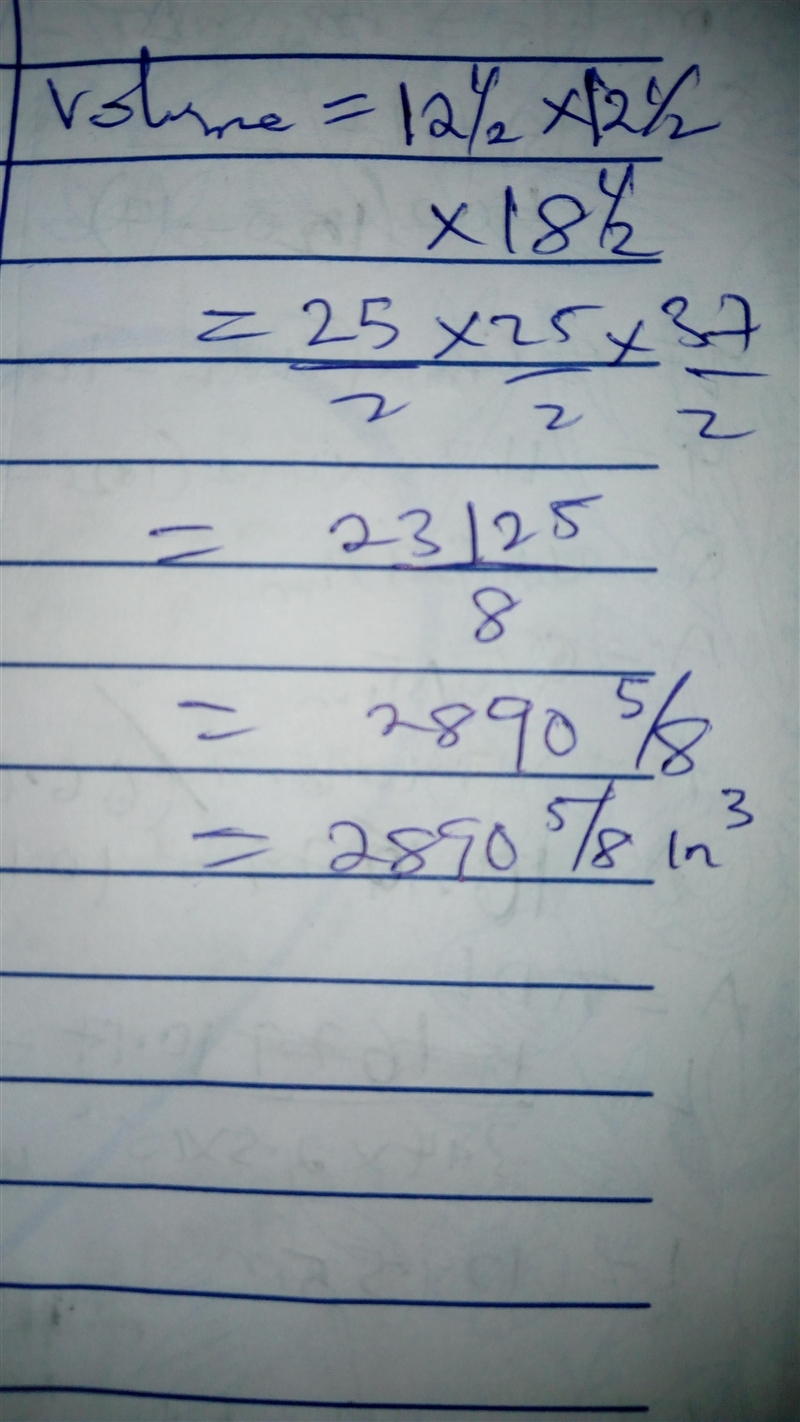 Volume = 12 1/2 × 12 1/2
× 18 1/2
= 25/2 × 25/2 × 37/2
= 23125/8
= 2890 5/8
= 2890 5/8 in³